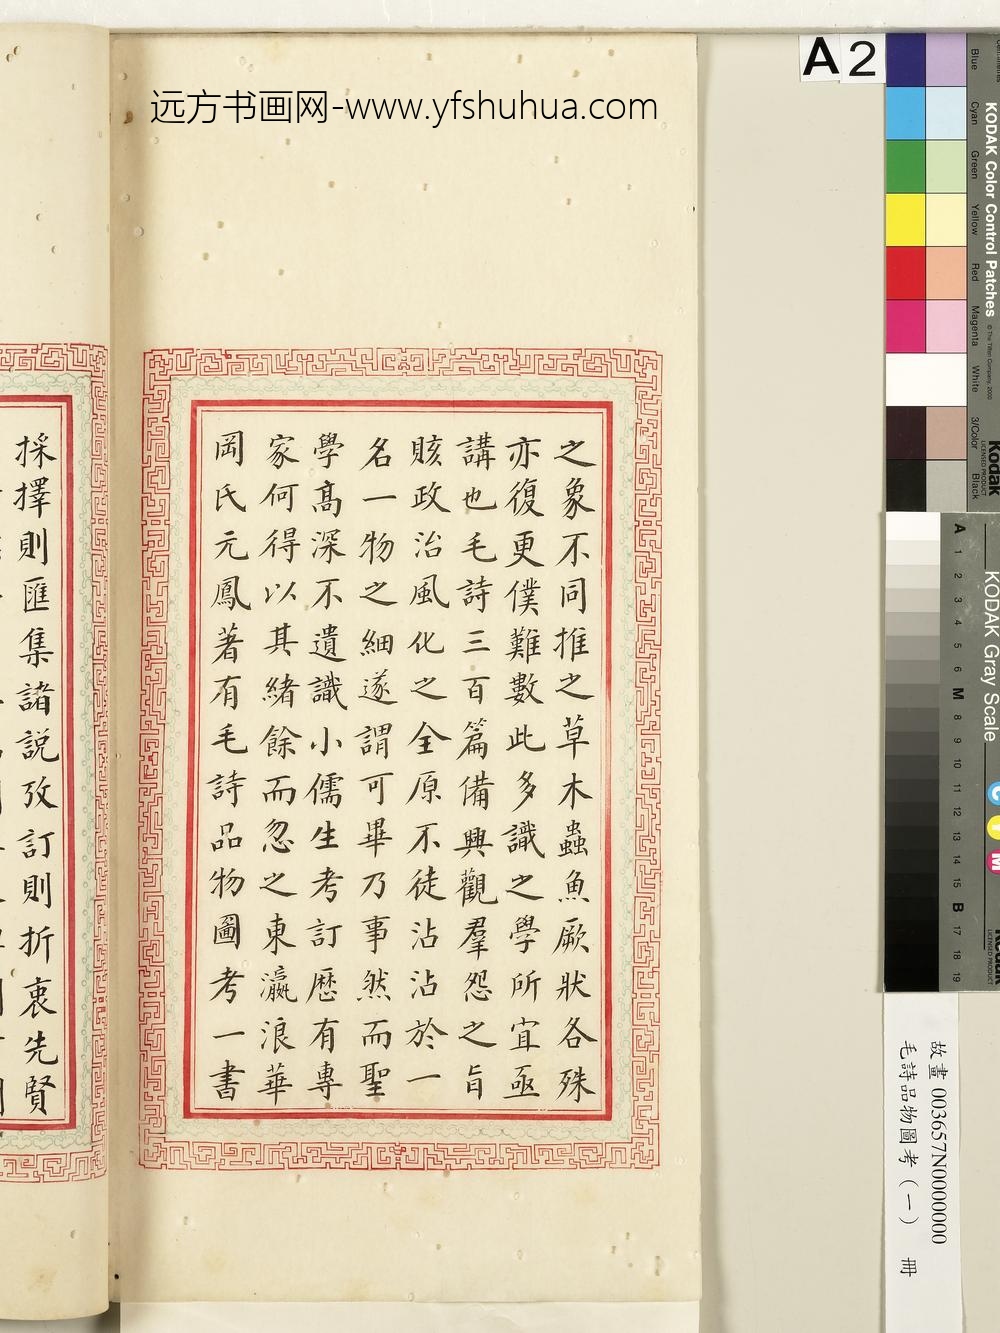 远方书画网-www.yfshuhua.com
之象不同推之草木蟲魚厥狀各殊
亦復更僕難數此多識之學所宜亟
講也毛詩三百篇備興觀羣怨之旨
賅政治風化之全原不徒沾沾於一
名一物之細遂謂可畢乃事然而聖
學高深不遺識小儒生考訂歷有專
家何得以其緒餘而忽之東瀛浪華
岡氏元鳳著有毛詩品物圖考一書
採擇則匯集諸説攷訂則折衷先賢
A 2
KODAK Color Control Patches
© The Tiffen Company, 2000
Blue
Cyan
Green
Yellow
Red
Magenta
White
3/Color
Black
Kodak
LICENSED PRODUCT
KODAK Gray Scale
A 1 2 3 4 5 6 M 8 9 10 11 12 13 14 15 B 17 18 19
C
Y
M
故畫 003657N0000000
毛詩品物圖考（一） 冊